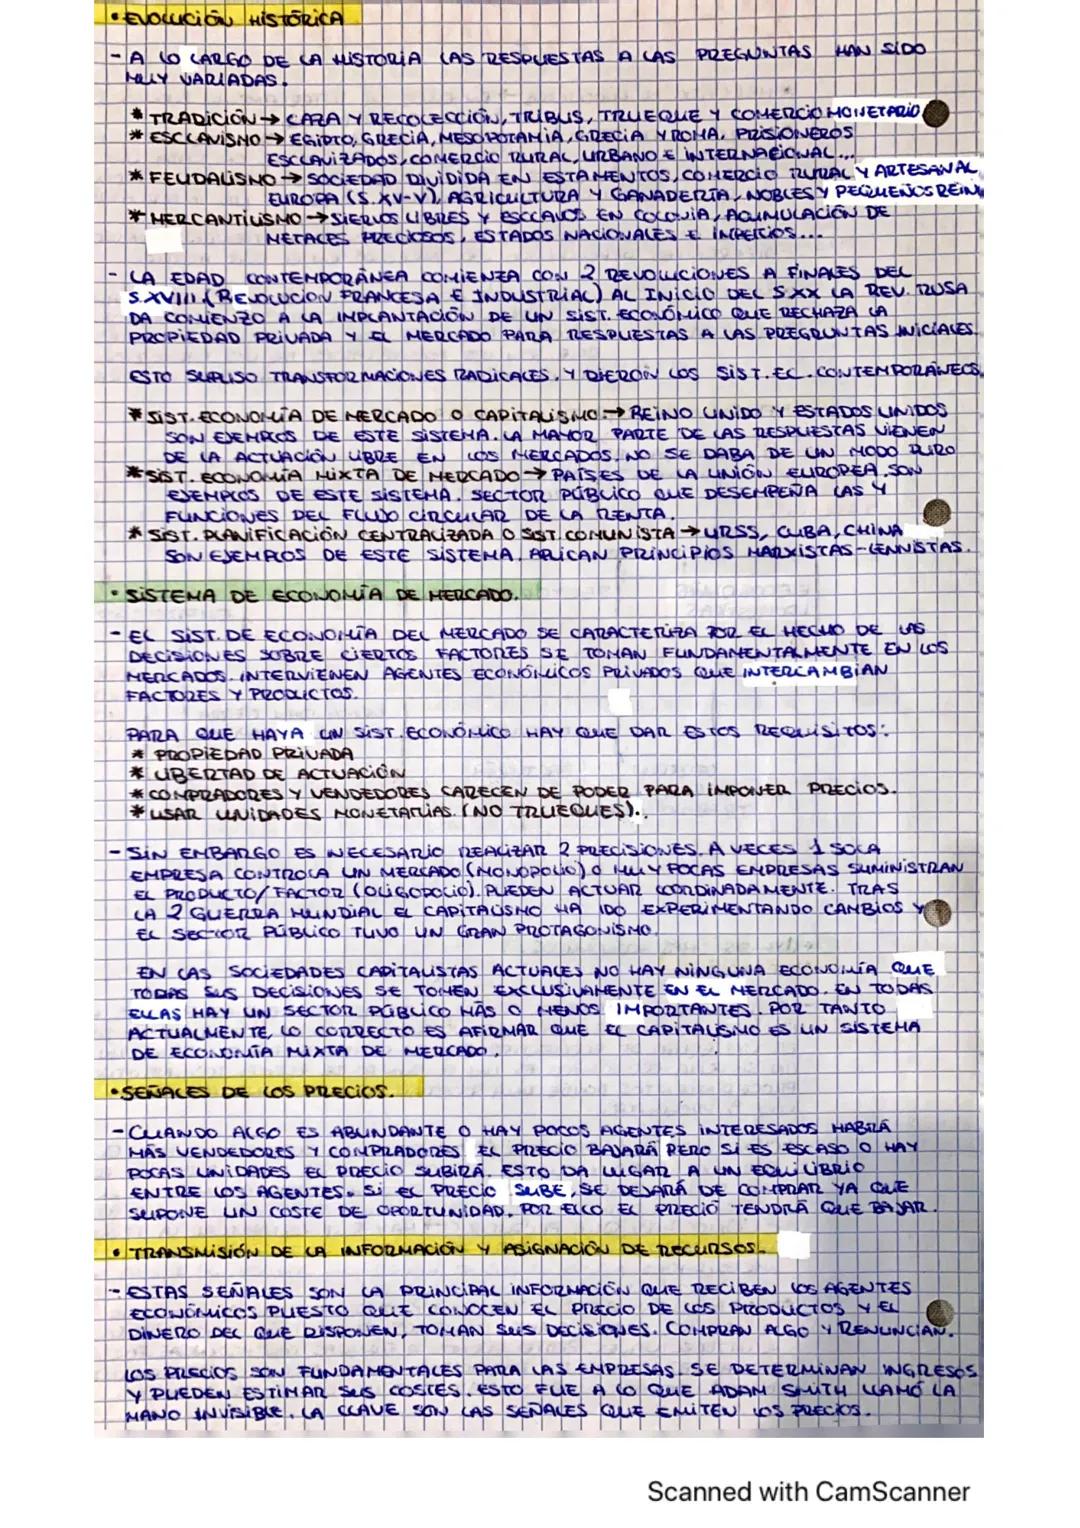 • EVOLUCIÓN HISTÓRICA
- A LO LARGO DE LA HISTORIA LAS RESPUESTAS A LAS PREGUNTAS HAN SIDO
MUY VARIADAS.
* TRADICIÓN → CAZA Y RECOLECCIÓN, TRIBUS, TRUEQUE Y COMERCIO MONETARIO
* ESCLAVISMO → EGIPTO, GRECIA, MESOPOTAMIA, GRECIA Y ROMA. PRISIONEROS
ESCLAVIZADOS, COMERCIO RURAL, URBANO E INTERNACIONAL...
* FEUDALISMO → SOCIEDAD DIVIDIDA EN ESTAMENTOS, COMERCIO RURAL Y ARTESANAL
EUROPA (S. XV-V), AGRICULTURA Y GANADERÍA, NOBLES Y PEQUEÑOS REIN
* MERCANTILISMO → SIERVOS LIBRES Y ESCLAVOS EN COLONIA, ACUMULACIÓN DE
METALES PRECIOSOS, ESTADOS NACIONALES E IMPERIOS...
- LA EDAD CONTEMPORÁNEA COMIENZA CON 2 REVOLUCIONES A FINALES DEL
S.XVIII (REVOLUCION FRANCESA E INDUSTRIAL) AL INICIO DEL S.XX LA REV. RUSA
DA COMIENZO A LA IMPLANTACIÓN DE UN SIST. ECONÓMICO QUE RECHAZA LA
PROPIEDAD PRIVADA Y EL MERCADO PARA RESPUESTAS A LAS PREGUNTAS INICIALES.
ESTO SUPUSO TRANSFORMACIONES RADICALES. Y DIERON LOS SIST. EC. CONTEMPORÁNEOS.
* SIST. ECONOMÍA DE MERCADO O CAPITALISMO. → REINO UNIDO Y ESTADOS UNIDOS
SON EJEMPLOS DE ESTE SISTEMA. LA MAYOR PARTE DE LAS RESPUESTAS VIENEN
DE LA ACTUACIÓN LIBRE EN LOS MERCADOS. NO SE DABA DE UN MODO PURO
* SIST. ECONOMÍA MIXTA DE MERCADO → PAÍSES DE LA UNIÓN EUROPEA SON
EJEMPLOS DE ESTE SISTEMA. SECTOR PÚBLICO QUE DESEMPEÑA LAS 4
FUNCIONES DEL FLUJO CIRCULAR DE LA RENTA.
* SIST. PLANIFICACIÓN CENTRALIZADA O SIST. COMUNISTA → URSS, CUBA, CHINA
SON EJEMPLOS DE ESTE SISTEMA. APLICAN PRINCIPIOS MARXISTAS-LENNISTAS.
• SISTEMA DE ECONOMÍA DE MERCADO.
- EL SIST. DE ECONOMÍA DEL MERCADO SE CARACTERIZA POR EL HECHO DE LAS
DECISIONES SOBRE CIERTOS FACTORES SE TOMAN FUNDAMENTALMENTE EN LOS
MERCADOS. INTERVIENEN AGENTES ECONÓMICOS PRIVADOS QUE INTERCAMBIAN
FACTORES Y PRODUCTOS.
PARA QUE HAYA UN SIST. ECONÓMICO HAY QUE DAR ESTOS REQUISITOS:
* PROPIEDAD PRIVADA
* LIBERTAD DE ACTUACIÓN
* COMPRADORES Y VENDEDORES CARECEN DE PODER PARA IMPONER PRECIOS.
* USAR UNIDADES MONETARIAS. (NO TRUEQUES).
- SIN EMBARGO ES NECESARIO REALIZAR 2 PRECISIONES. A VECES 1 SOLA
EMPRESA CONTROLA UN MERCADO (MONOPOLIO) O MUY POCAS EMPRESAS SUMINISTRAN
EL PRODUCTO/FACTOR (OLIGOPOLIO). PUEDEN ACTUAR COORDINADAMENTE. TRAS
LA 2 GUERRA MUNDIAL EL CAPITALISMO HA IDO EXPERIMENTANDO CAMBIOS Y
EL SECTOR PÚBLICO TUVO UN GRAN PROTAGONISMO.
EN LAS SOCIEDADES CAPITALISTAS ACTUALES NO HAY NINGUNA ECONOMÍA QUE
TODAS SUS DECISIONES SE TOMEN EXCLUSIVAMENTE EN EL MERCADO. EN TODAS
ELLAS HAY UN SECTOR PÚBLICO MÁS O MENOS IMPORTANTES. POR TANTO
ACTUALMENTE, LO CORRECTO ES AFIRMAR QUE EL CAPITALISMO ES UN SISTEMA
DE ECONOMÍA MIXTA DE MERCADO.
• SEÑALES DE LOS PRECIOS.
- CUANDO ALGO ES ABUNDANTE O HAY POCOS AGENTES INTERESADOS HABRÁ
MÁS VENDEDORES Y COMPRADORES EL PRECIO BAJARÁ PERO SI ES ESCASO O HAY
POCAS UNIDADES EL PRECIO SUBIRÁ. ESTO DA LUGAR A UN EQUILIBRIO
ENTRE LOS AGENTES. SI EL PRECIO SUBE, SE DEJARÁ DE COMPRAR YA QUE
SUPONE UN COSTE DE OPORTUNIDAD. POR ELLO EL PRECIO TENDRÁ QUE BAJAR.
• TRANSMISIÓN DE LA INFORMACIÓN Y ASIGNACIÓN DE RECURSOS.
- ESTAS SEÑALES SON LA PRINCIPAL INFORMACIÓN QUE RECIBEN LOS AGENTES
ECONÓMICOS PUESTO QUE CONOCEN EL PRECIO DE LOS PRODUCTOS Y EL
DINERO DEL QUE DISPONEN, TOMAN SUS DECISIONES. COMPRAN ALGO Y RENUNCIAN.
LOS PRECIOS SON FUNDAMENTALES PARA LAS EMPRESAS. SE DETERMINAN INGRESOS
Y PUEDEN ESTIMAR SUS COSTES. ESTO FUE A LO QUE ADAM SMITH LLAMÓ LA
MANO INVISIBLE. LA CLAVE SON LAS SEÑALES QUE EMITEN LOS PRECIOS.
Scanned with CamScanner